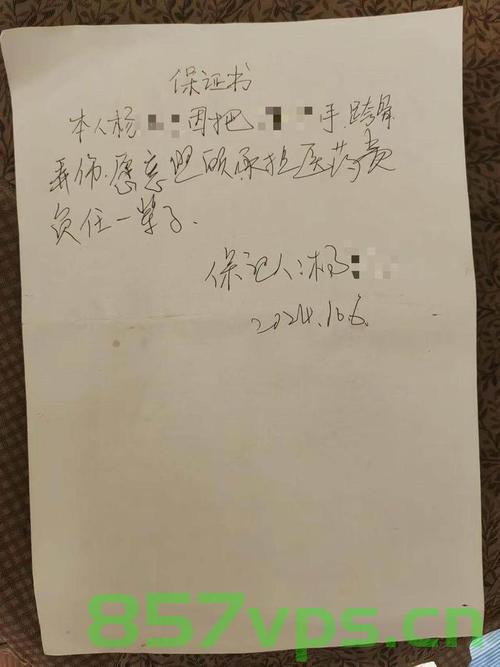 保证书
本人杨 因把 手,跨骨
弄伤.愿意照顾承担医药费
负任一辈子.
保证人:杨
2024.10.6.
857vps.cn